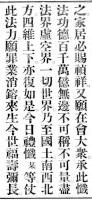 之家居必賜禎祥又願在會大衆承此懺
法功德百千萬億無邊不可稱不可量盡
法界虛空界一切世界乃至國土南西北
方四維上下亦復如是今日禮懺某等仗
此法力願罪業消鎔來生今世福壽彌長